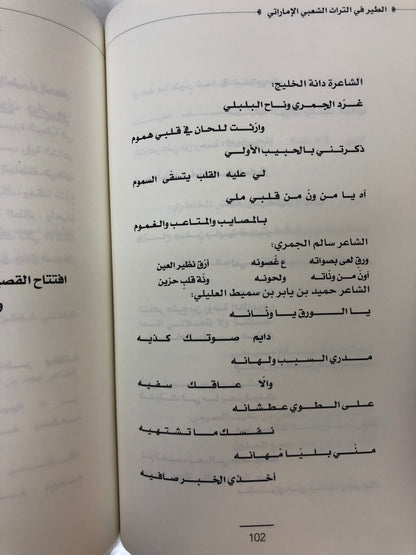 الطير في التراث الشعبي الإماراتي
الشاعرة دانة الخليج:
غرّد الجمري وناح البلبلي
وارثت للحان في قلبي هموم
ذكرتني بالحبيب الأولي
ليّ عليه القلب يتسقّى السموم
آه يا من ونّ من قلبي ملي
بالمصايب والمتاعب والغموم
الشاعر سالم الجمري:
ورق لعى بصواته ع غصونه أزق نظير العين
أونّ من ونّاته ولحونه ونّة قلب حزين
الشاعر حميد بن يابر بن سميط العليلي:
يا الورق يا ونّانه
دايم صوتك كذيه
مدري السبب ولهانه
والا عاقك سفيه
على الطوي عطشانه
نفسك ما تشتهيه
منّي بليّا مهانه
أخذي الخبر صافيه
102
افتتاح القص